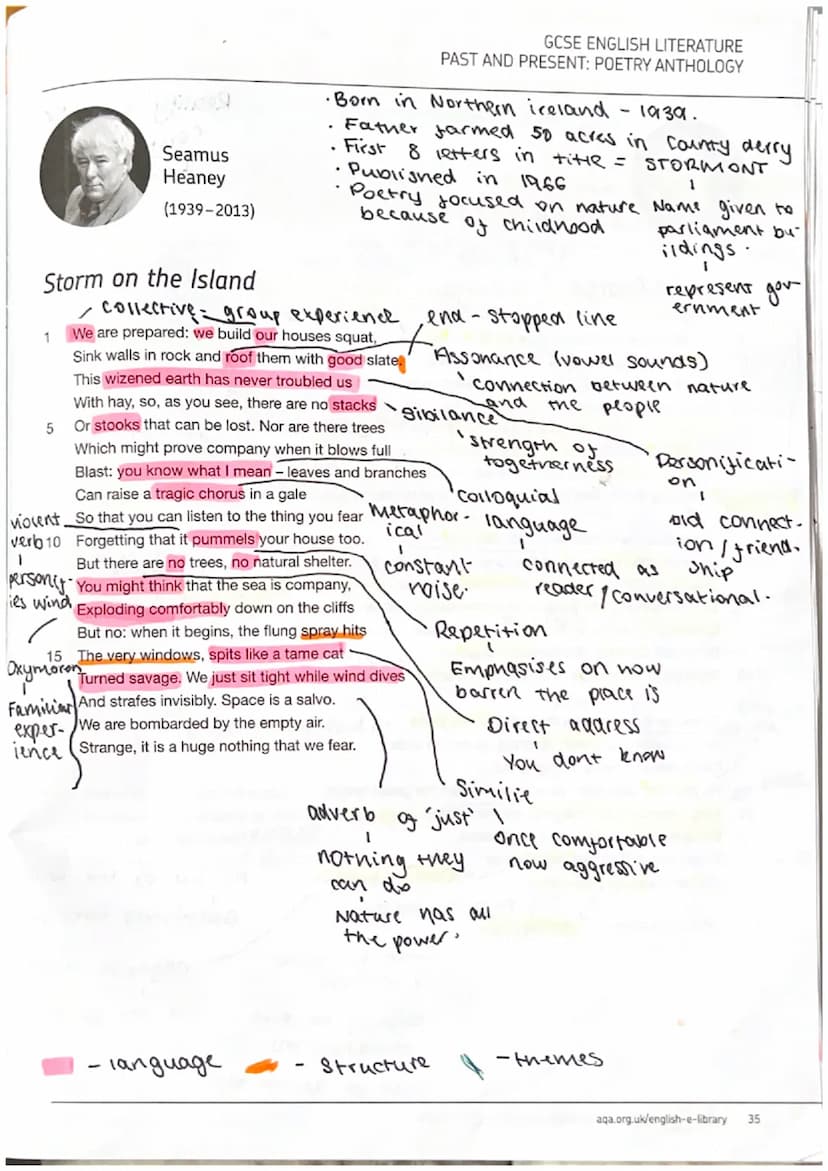 GCSE ENGLISH LITERATURE
PAST AND PRESENT: POETRY ANTHOLOGY
Seamus
Heaney
(1939–2013)
· Born in Northern ireland - 1939.
· Father farmed 50 acres in County derry
· First 8 letters in title = STORMONT
· Published in 1966
· Poetry focused on nature
because of childhood
Name given to
parliament bu-
ildings.
represent gov-
ernment
Storm on the Island
collective - group experience
end - stopped line
1 We are prepared: we build our houses squat,
Sink walls in rock and roof them with good slate.
This wizened earth has never troubled us
With hay, so, as you see, there are no stacks
5 Or stooks that can be lost. Nor are there trees
Which might prove company when it blows full
Blast: you know what I mean – leaves and branches
Can raise a tragic chorus in a gale
So that you can listen to the thing you fear
10 Forgetting that it pummels your house too.
But there are no trees, no natural shelter.
You might think that the sea is company,
Exploding comfortably down on the cliffs
But no: when it begins, the flung spray hits
15 The very windows, spits like a tame cat
Turned savage. We just sit tight while wind dives
And strafes invisibly. Space is a salvo.
We are bombarded by the empty air.
Strange, it is a huge nothing that we fear.
Assonance (vowel sounds)
connection between nature
and the people
Sibilance
strength of
togetherness
Personificati-
on
old connect-
ion/friend-
ship
Colloquial
language
connected as
reader/conversational.
Metaphor-
ical
constant
noise.
violent
verb
personif-
ies wind
Oxymoron
Familiar
exper-
ience
Repetition
Emphasises on how
barren the place is
Direct address
You dont know
Similie
once comfortable
now aggressive
adverb of 'just'
nothing they
can do
Nature has all
the power.
- language
- structure
- themes
aqa.org.uk/english-e-library 35